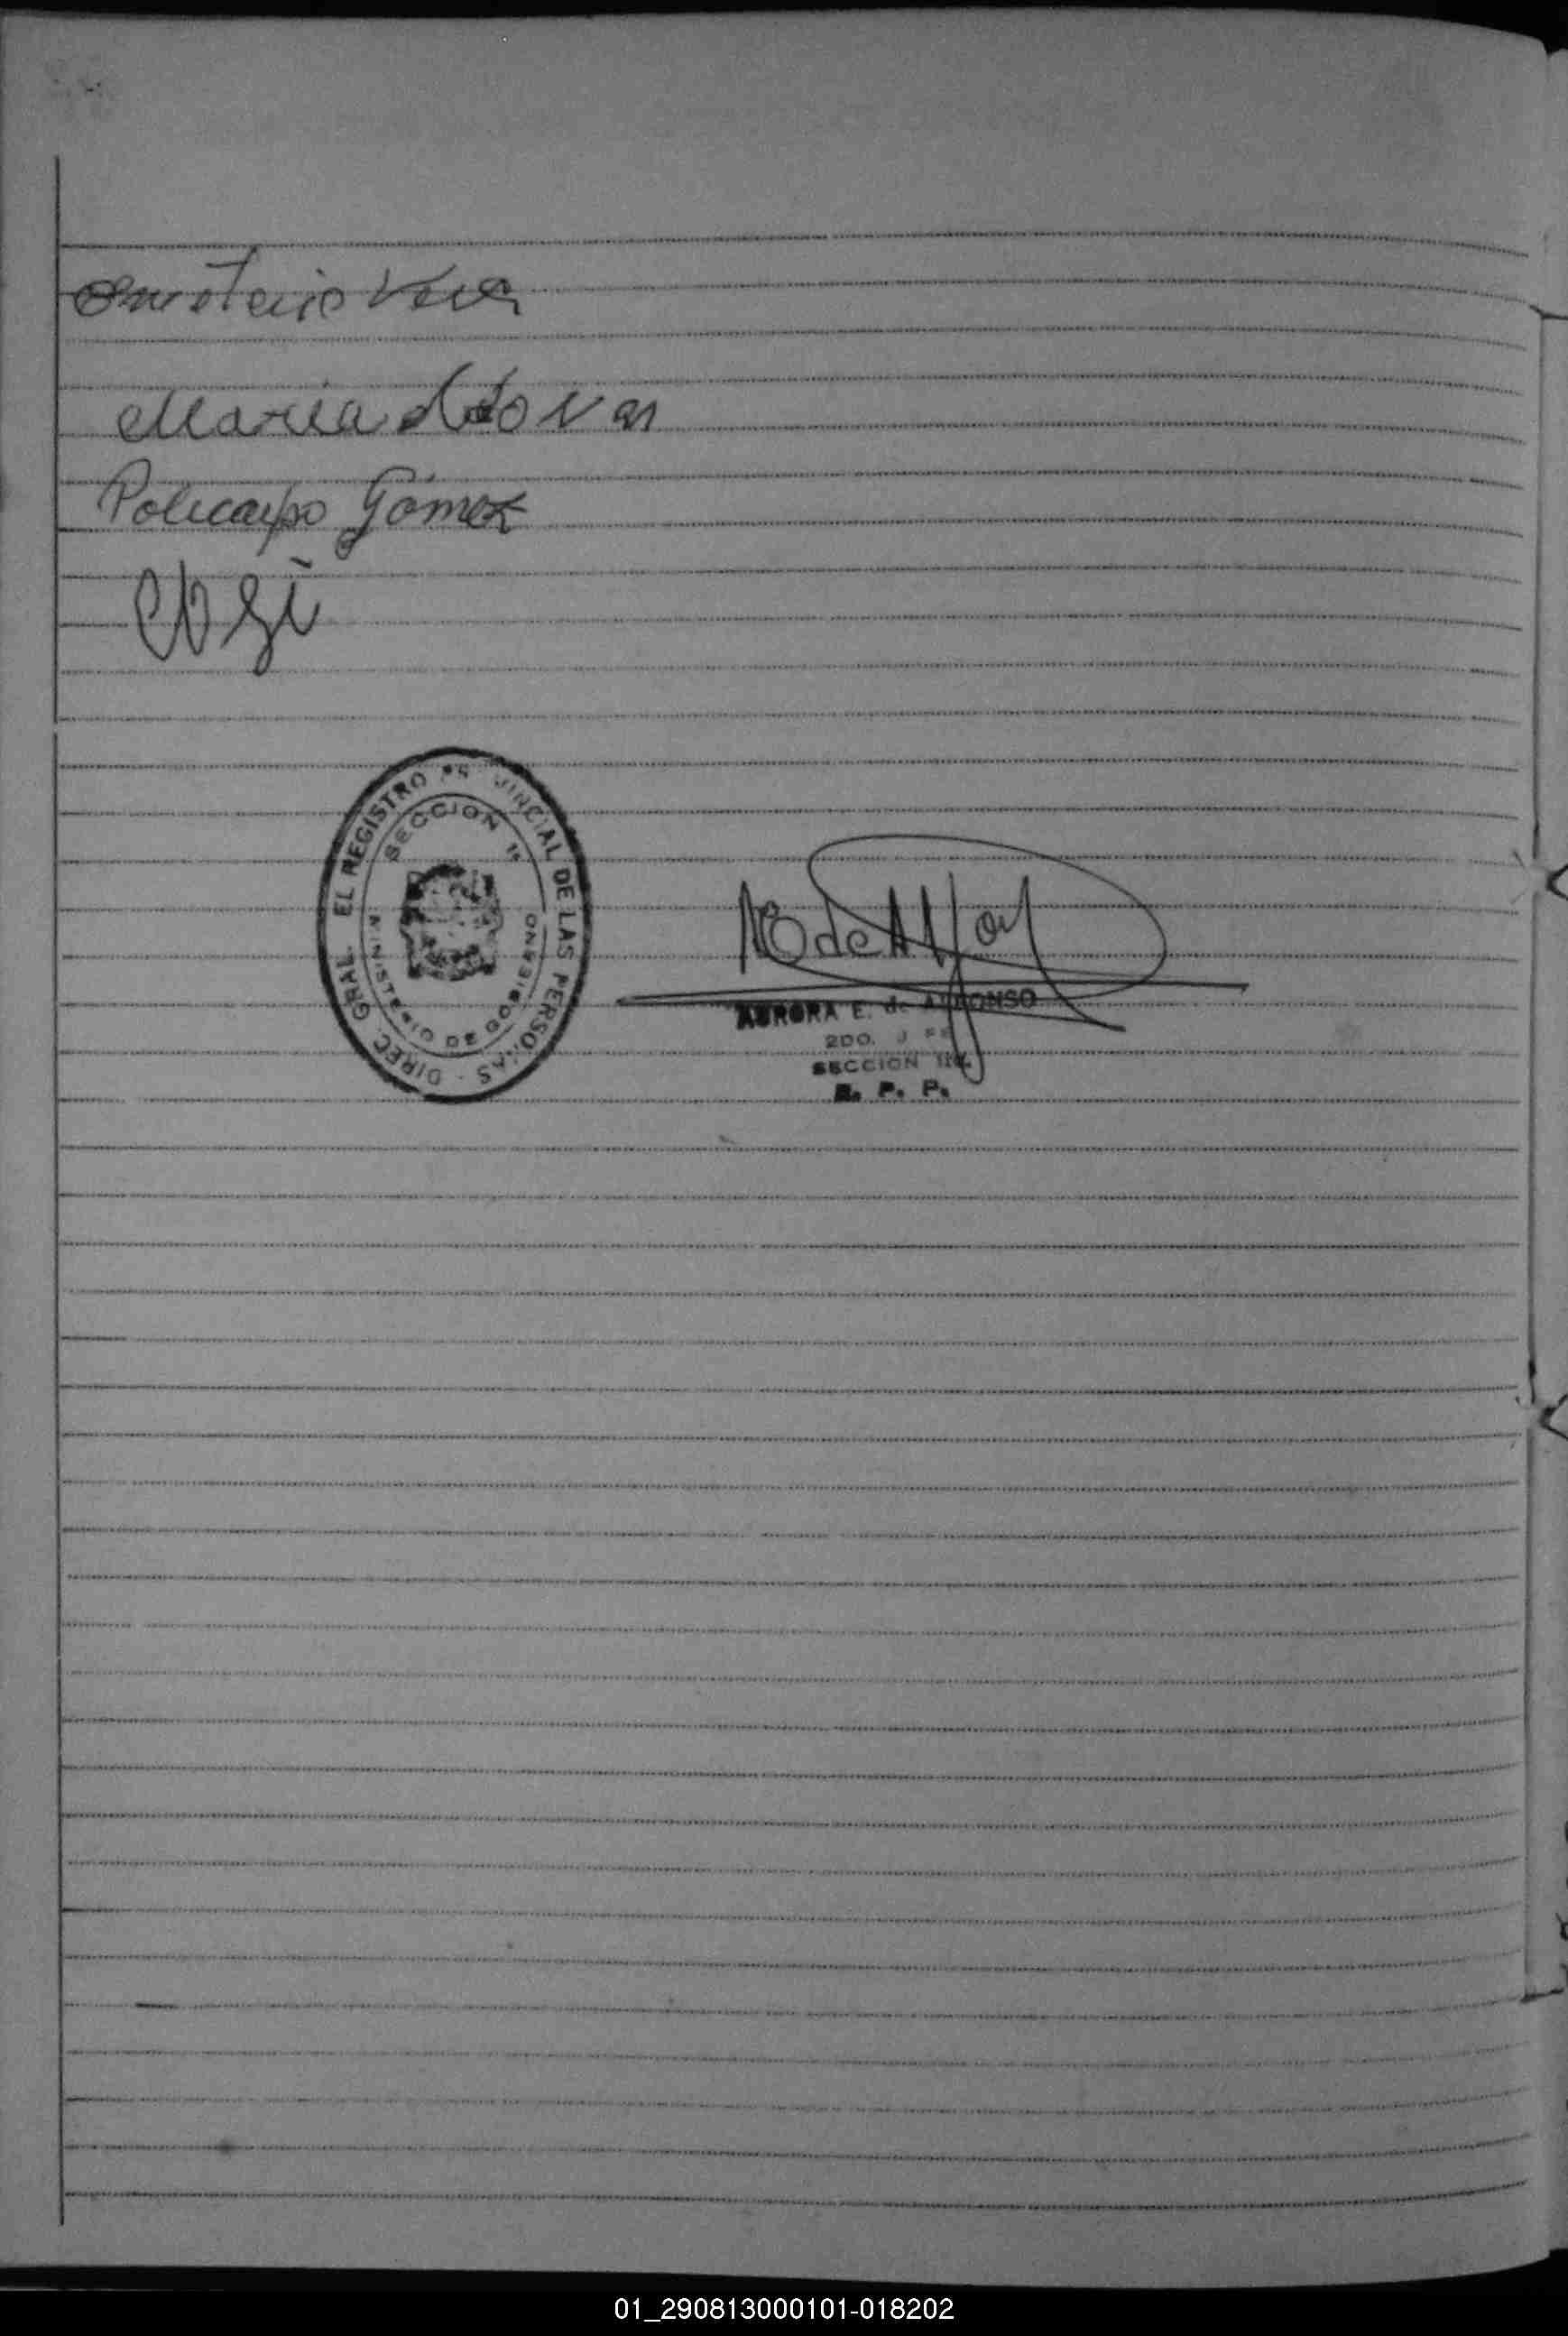 Emeterio Vera
Maria
Policarpo Gómez
DIREC. GRAL. EL REGISTRO PROVINCIAL DE LAS PERSONAS
SECCION 1ª
MINISTERIO DE GOBIERNO
AURORA E. de ALFONSO
2DO. JEFE
SECCION
R. P. P.
01_290813000101-018202